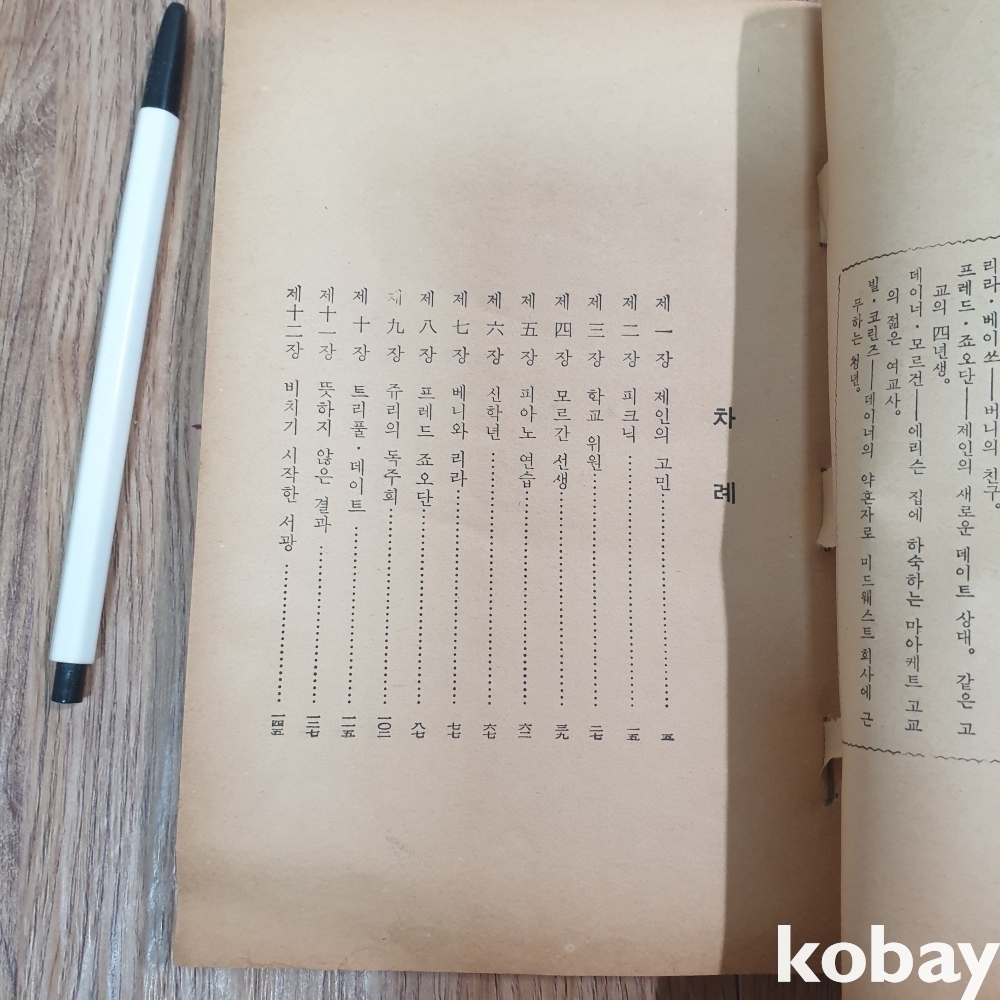 리라·베이쓰——버니의 친구。
프레드·죠오단——제인의 새로운 데이트 상대。 같은 고
교의 四년생。
데이너·모르건——에리슨 집에 하숙하는 마아케트 고교
의 젊은 여교사。
빌·코린즈——데이너의 약혼자로 미드웨스트 회사에 근
무하는 청년。
차 례
제 一 장 제인의 고민 五
제 二 장 피크닉 一五
제 三 장 학교 위원 二七
제 四 장 모르간 선생 三九
제 五 장 피아노 연습 六二
제 六 장 신학년 六七
제 七 장 베니와 리라 七七
제 八 장 프레드 죠오단 八七
제 九 장 쥬리의 독주회 一〇二
제 十 장 트리풀·데이트 一一五
제十一장 뜻하지 않은 결과 一二七
제十二장 비치기 시작한 서광 一四五
kobay